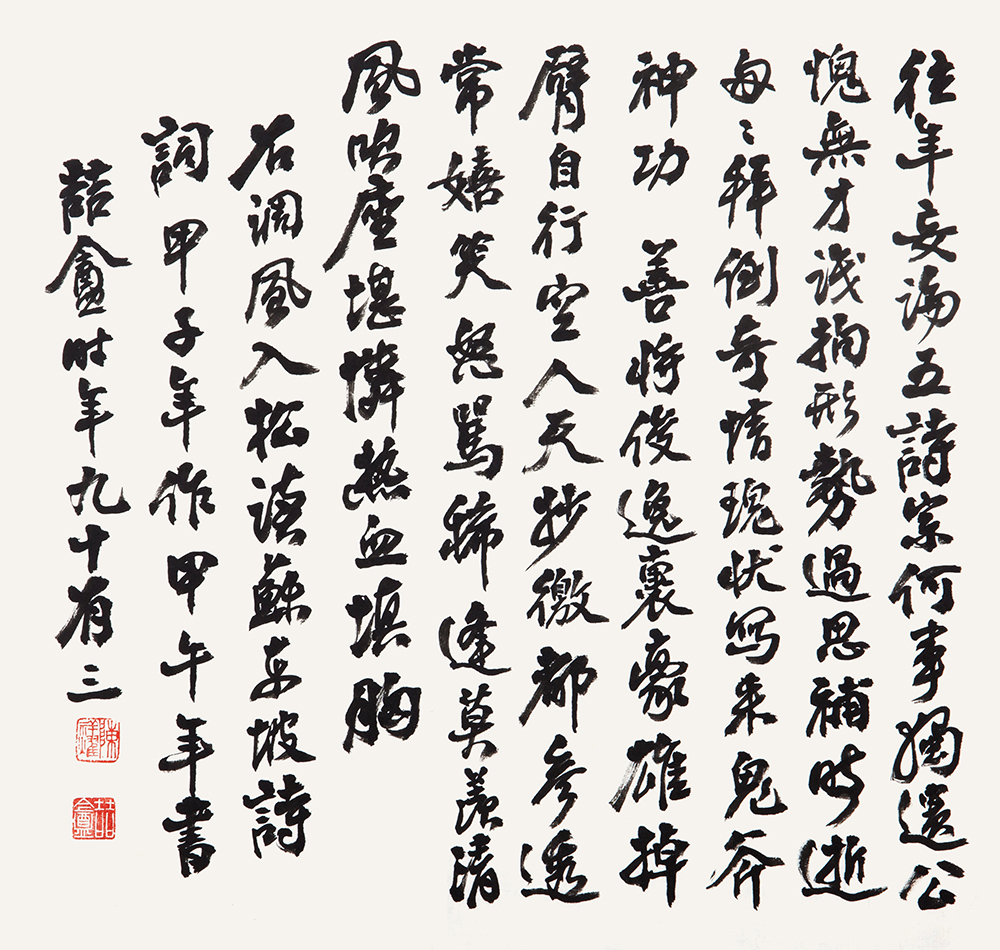 往年妄論五詩宗何事獨遺公
愧無才識摘形勢過思補時逝
每々拜倒奇情瑰狀寫來鬼斧
神功　善將俊逸裹豪雄掉
臂自行空人天妙徼都參透
常嬉笑怒罵稀逢莫羨清
風吹座堪憐熱血填胸
右調風入松讀蘇東坡詩
詞甲子年作甲午年書
喆盦時年九十有三
陳祥耀
喆盦